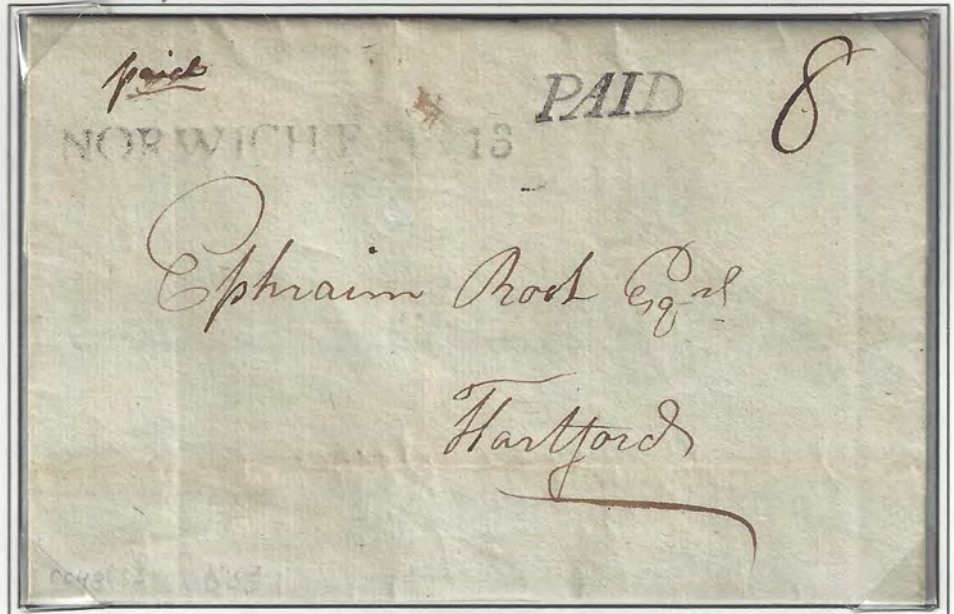 paid
PAID
8
NORWICH 18
Ephraim Root Esqr
Hartford